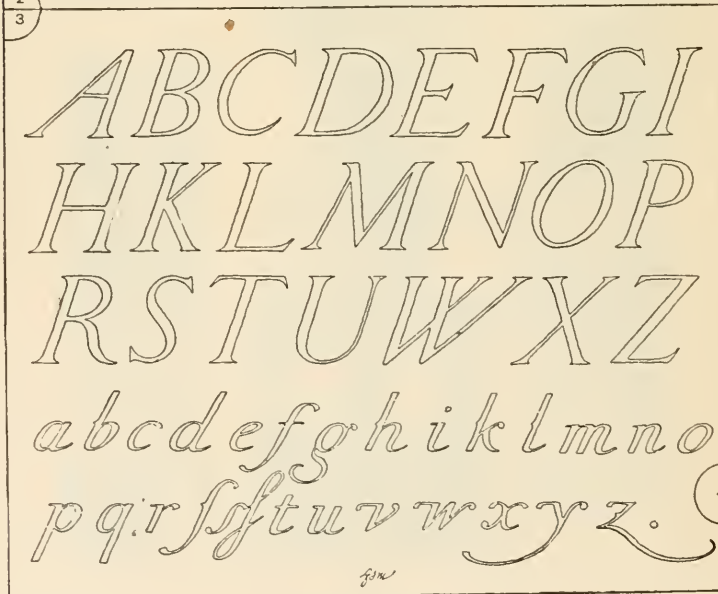 2
3
ABCDEFGI
HKLMNOP
RSTUWXZ
abcdefghiklmno
pqrſstuvwxyz.